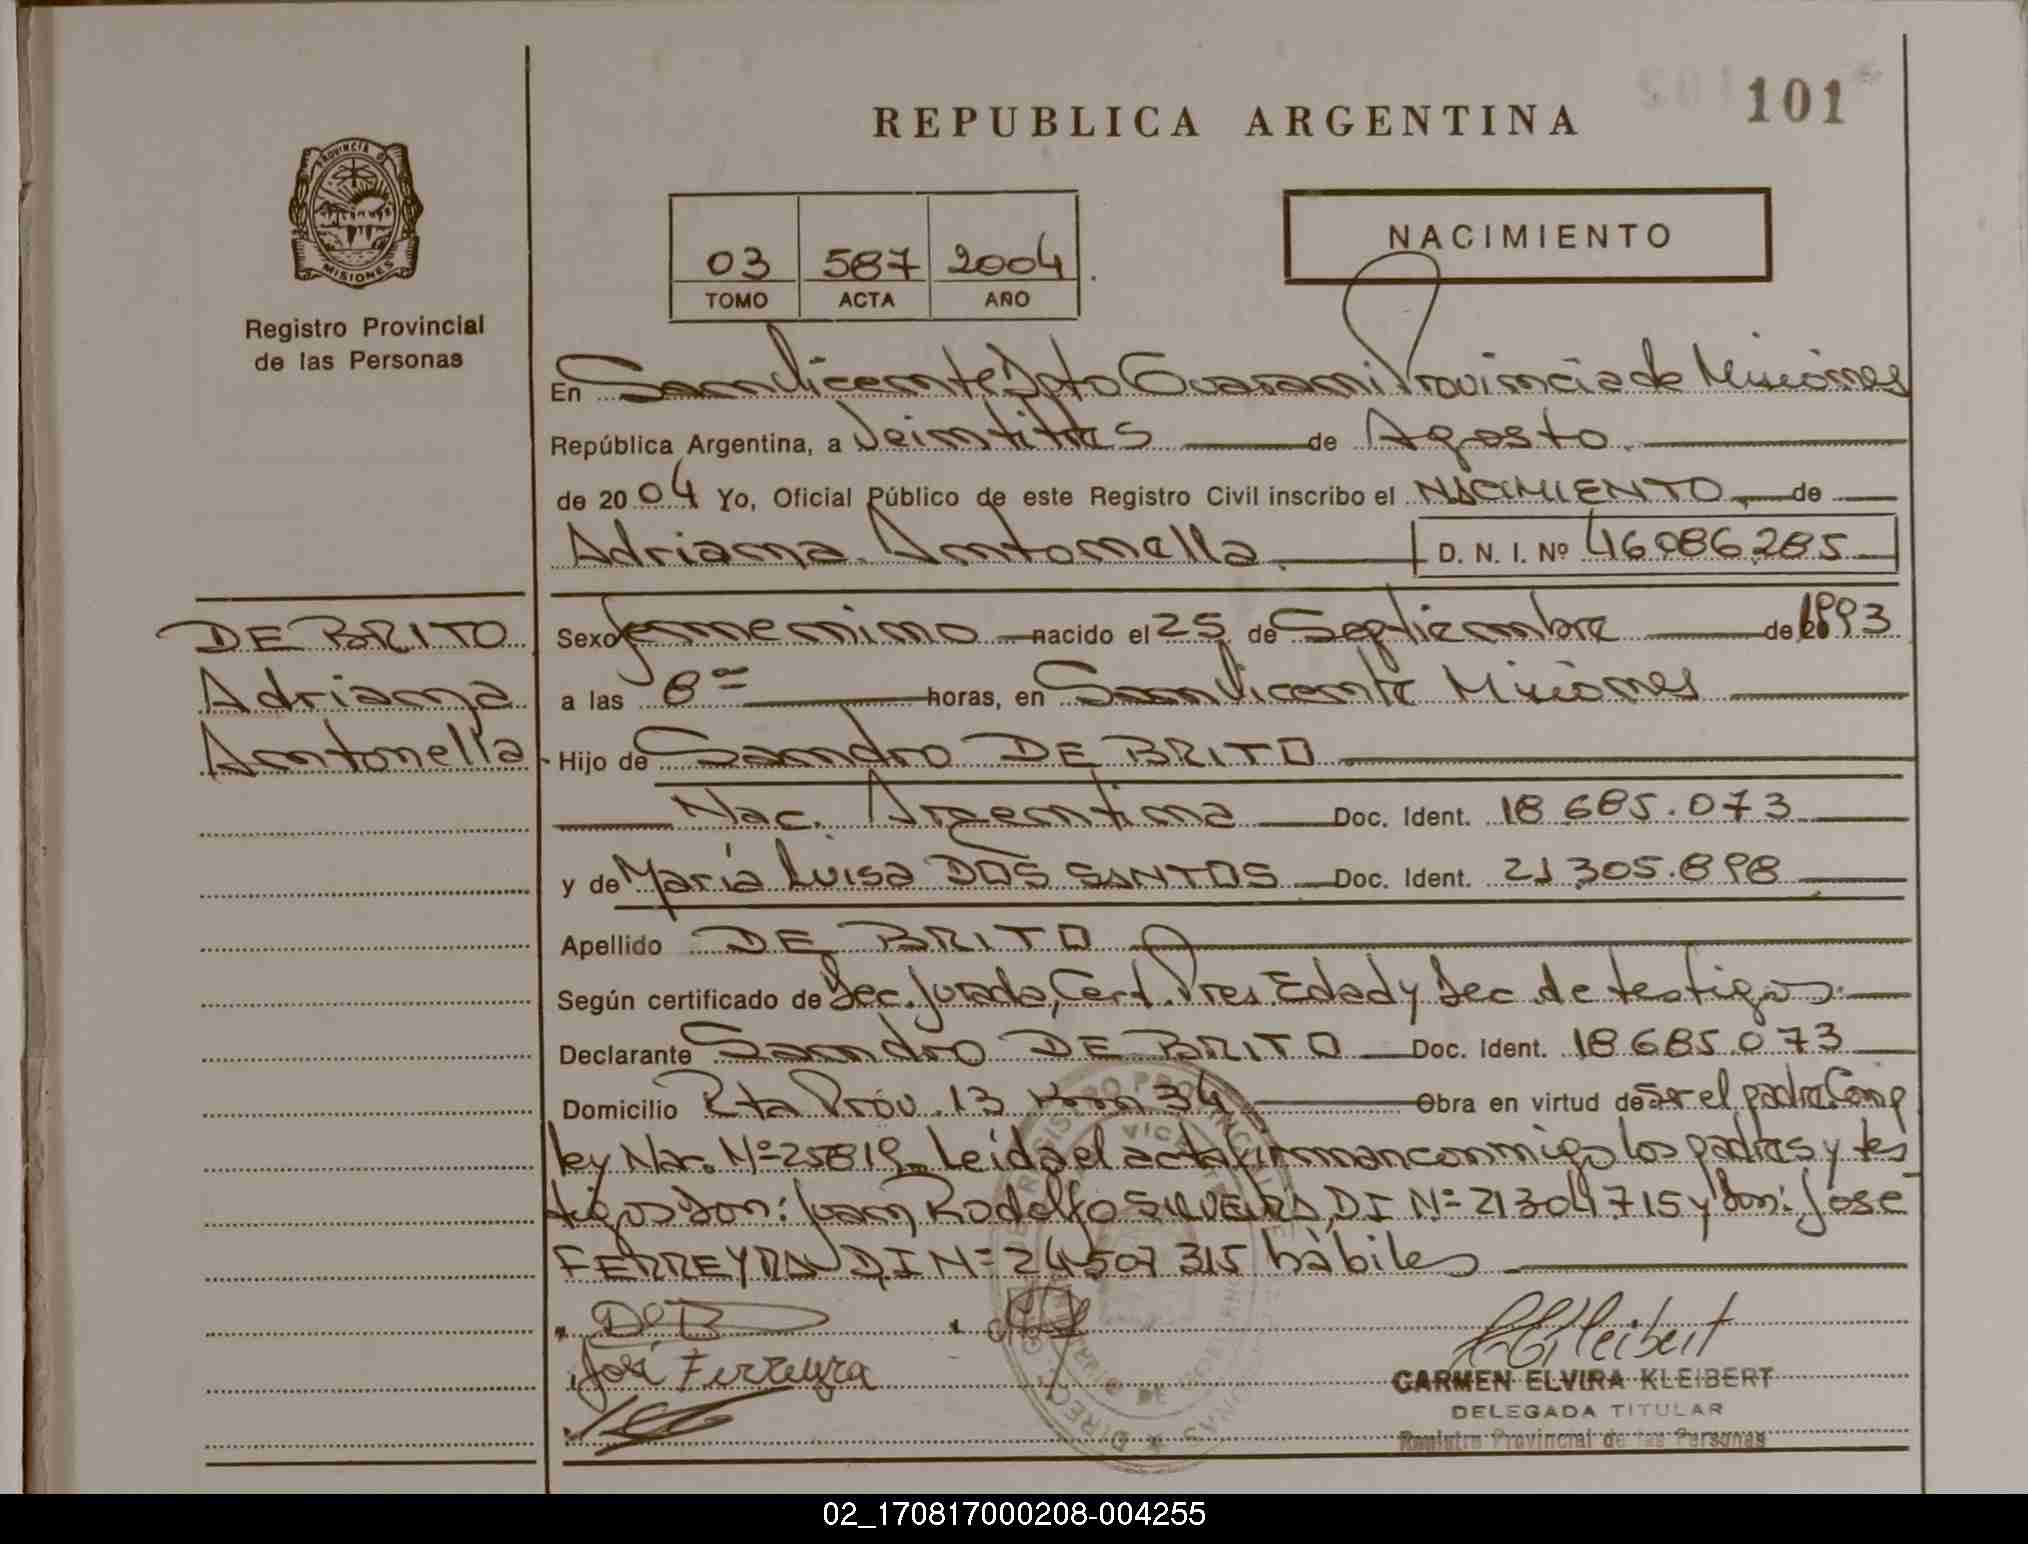 101
REPUBLICA ARGENTINA
PROVINCIA DE
MISIONES
Registro Provincial
de las Personas
03 587 2004
TOMO ACTA AÑO
NACIMIENTO
En San Vicente Dpto Guarani Provincia de Misiones
República Argentina, a Veintitres de Agosto.
de 2004 Yo, Oficial Público de este Registro Civil inscribo el NACIMIENTO de
Adriana Antonella D. N. I. Nº 46086285
DE BRITO
Adriana
Antonella
Sexo femenino nacido el 25 de Septiembre de 1993
a las 8 horas, en San Vicente Misiones
Hijo de Sandro DE BRITO
Nac. Argentina Doc. Ident. 18 685.073
y de María Luisa DOS SANTOS Doc. Ident. 21 305.898
Apellido DE BRITO
Según certificado de Dec. Jurada, Cert. Pres Edad y Dec. de testigos.
Declarante Sandro DE BRITO Doc. Ident. 18 685.073
Domicilio Rta Prov. 13 Km 34 Obra en virtud de ser el padre. Comp
ley Nac. Nº 25819. Leida el acta firman conmigo los padres y tes
tigos Don: Juan Rodolfo SILVEIRA, DI Nº 21304715 y Don: José
FERREYRA D.I Nº 24507315 hábiles
De B
José Ferreyra
CKleibert
CARMEN ELVIRA KLEIBERT
DELEGADA TITULAR
Registro Provincial de las Personas
02_170817000208-004255